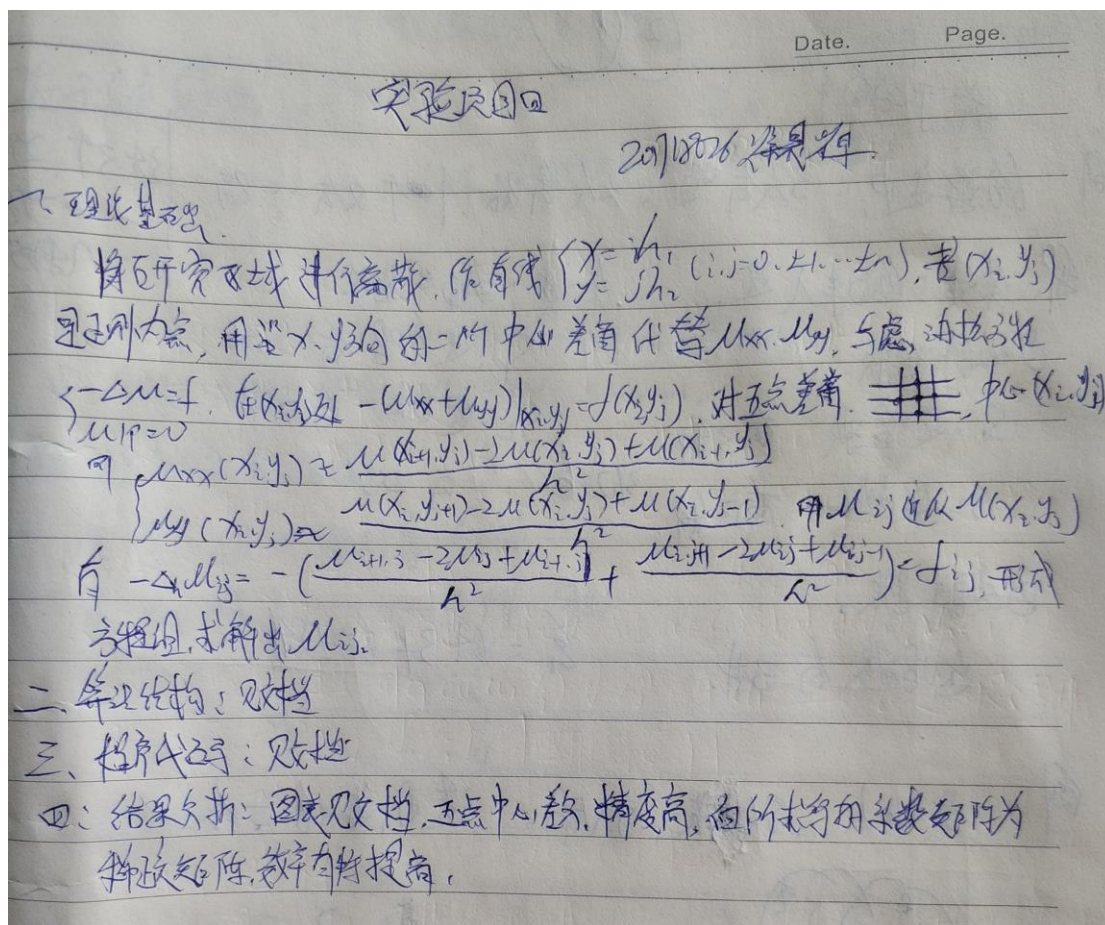 Date. Page.
实验项目四
20171826
一、理论基础.
将研究区域进行离散, 作直线 { x = ih₁ y = jh₂ (i.j=0. ±1. ⋯ ±n), 若 (xᵢ, yⱼ)
是正则内点, 用沿x.y方向的二阶中心差商代替 uxx. uyy, 考虑泊松方程
{ -Δu=f. u|Γ=0 在(xᵢ,yⱼ)处 -(uxx+uyy)|(xᵢ,yⱼ)=f(xᵢ,yⱼ). 对五点差商. , 中心(xᵢ,yⱼ)
则 { uxx(xᵢ,yⱼ) ≈ (u(xᵢ₊₁,yⱼ)-2u(xᵢ,yⱼ)+u(xᵢ₋₁,yⱼ))/h²
uyy(xᵢ,yⱼ) ≈ (u(xᵢ,yⱼ₊₁)-2u(xᵢ,yⱼ)+u(xᵢ,yⱼ₋₁))/h² 用uᵢⱼ近似u(xᵢ,yⱼ)
有 -Δₕuᵢⱼ = -((uᵢ₊₁,ⱼ-2uᵢⱼ+uᵢ₋₁,ⱼ)/h² + (uᵢ,ⱼ₊₁-2uᵢⱼ+uᵢ,ⱼ₋₁)/h²) = fᵢⱼ, 形成
方程组, 求解出uᵢⱼ.
二、算法结构: 见文档
三、程序代码: 见文档
四: 结果分析: 图表见文档. 五点中心差分, 精度高, 且所求得的系数矩阵为
稀疏矩阵, 效率有所提高.